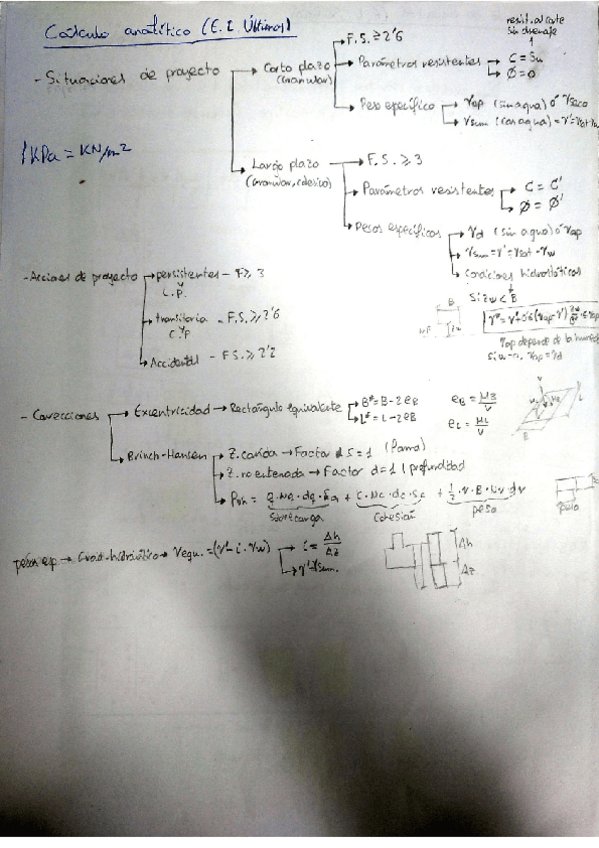 Cálculo analítico (E.L. Últimos)
resist. al corte
sin drenaje
- Situaciones de proyecto → Corto plazo
(Granular)
→ F.S. ≥ 2'6
→ Parámetros resistentes → C = Su
→ Ø = 0
→ Peso específico → γap (sin agua) ó γseco
→ γsum (con agua) = γ' = γsat - γw
1 KPa = KN/m2
→ Largo plazo
(Granular, cohesivo)
→ F.S. ≥ 3
→ Parámetros resistentes → C = C'
→ Ø = Ø'
→ Pesos específicos → γd (sin agua) ó γap
→ γsum = γ' = γsat - γw
→ Condiciones hidrostáticas
Si zw < B
γap depende de la
- Acciones de proyecto → persistentes - F ≥ 3
C.P.
→ transitoria - F.S. ≥ 2'6
C y P
→ Accidental - F.S. ≥ 2'2
- Correcciones → Excentricidad → Rectángulo equivalente → B* = B - 2eB
→ L* = L - 2eB
eB = MB/V
eL = ML/V
→ Brinch-Hansen → Z. corrida → Factor d S = 1 (Forma)
→ Z. no enterrada → Factor d = 1 (profundidad
→ Pvh = q · Nq · dq · Sq + C · Nc · dc · Sc + 1/2 · γ · B ·
Sobrecarga
Cohesión
peso
pesos esp → Grad. hidráulico → γequ. = (γ' - i · γw) → i = Δh/Δz
→ γ' = γsum.
Δh
Δz